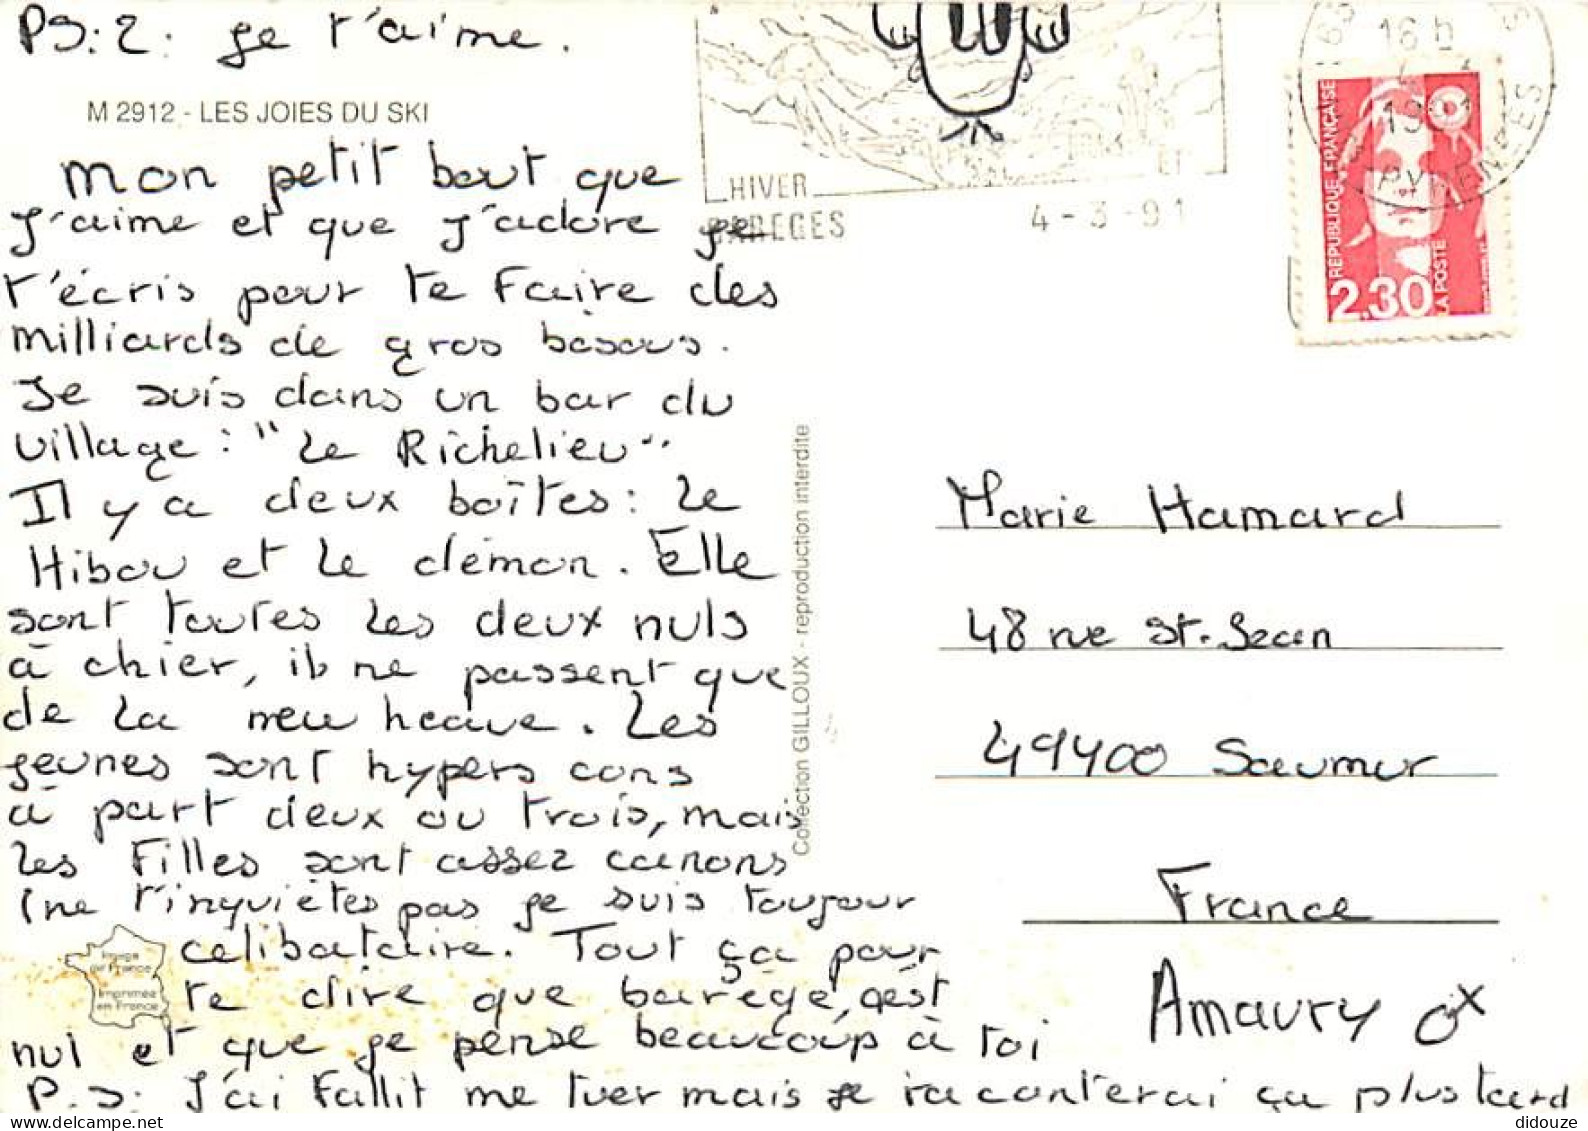 PS: 2: je t'aime.
M 2912 - LES JOIES DU SKI
Mon petit bout que
J'aime et que J'adore je
t'écris pour te Faire des
milliards de gros bisous.
Je suis dans un bar du
village : "Le Richelieu"
Il y a deux boîtes : Le
Hibou et Le démon. Elle
sont toutes Les deux nuls
à chier, ils ne passent que
de La new heave. Les
jeunes sont hypers cons
à part deux ou trois, mais
Les Filles sont assez canons
(ne t'inquiètes pas je suis toujour
celibataire. Tout ça pour
te dire que barège, c'est
nul et que je pense beaucoup à toi
P.S: J'ai Fallit me tuer mais je raconterai ça plus tard
Image en France
Imprimée en France
Collection GILLOUX - reproduction interdite
HIVER ET
BAREGES
4 - 3 - 91
16 h
1991
PYRENEES
RÉPUBLIQUE FRANÇAISE
2,30
LA POSTE
Marie Hamard
48 rue St. Jean
49400 Saumur
France
Amaury
didouze